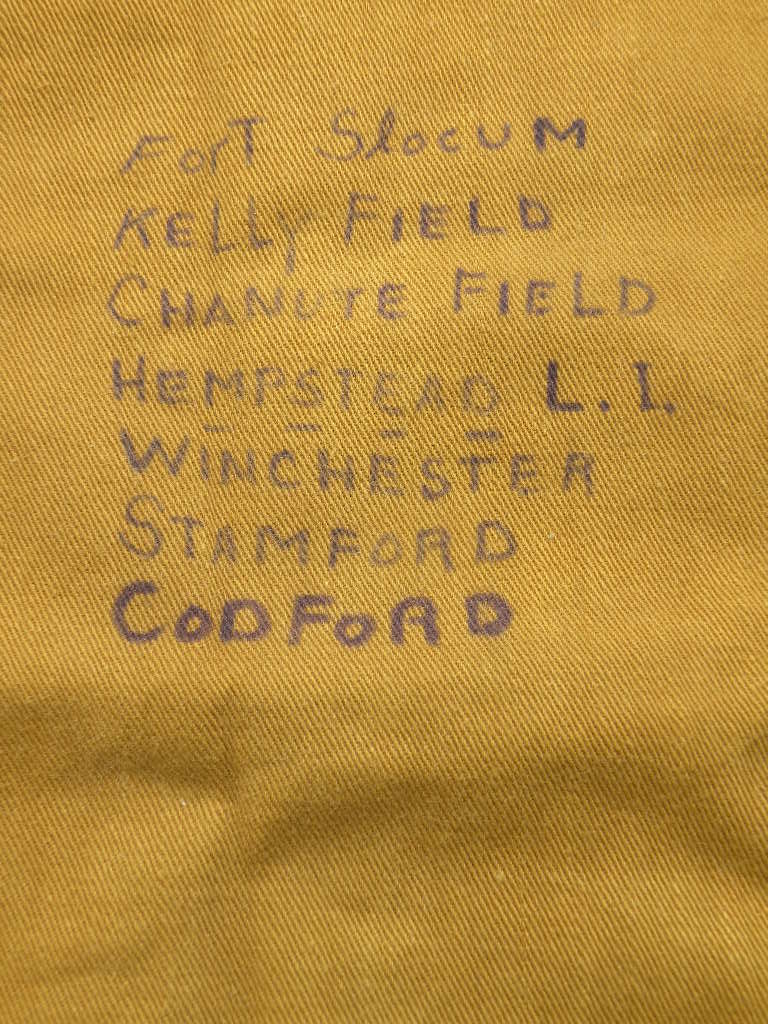 FORT SlOCUM
KELLy FIELD
CHANUTE FIELD
HEMPSTEAD L.I.
WINCHESTER
STAMFORD
CODFORD